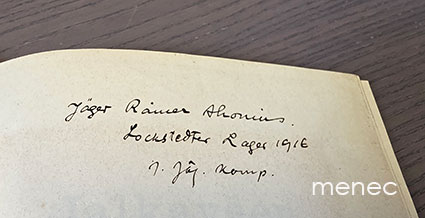 Jäger Rainer Ahonius.
Lockstedter Lager 1916
1. Jäg. Komp.
menec